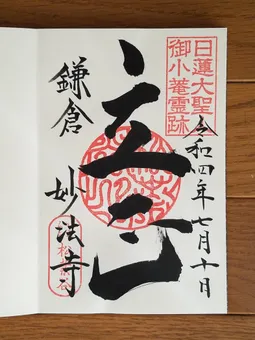 日蓮大聖人
御小菴霊跡
令和四年七月十日
立正
鎌倉 妙法寺
松葉谷